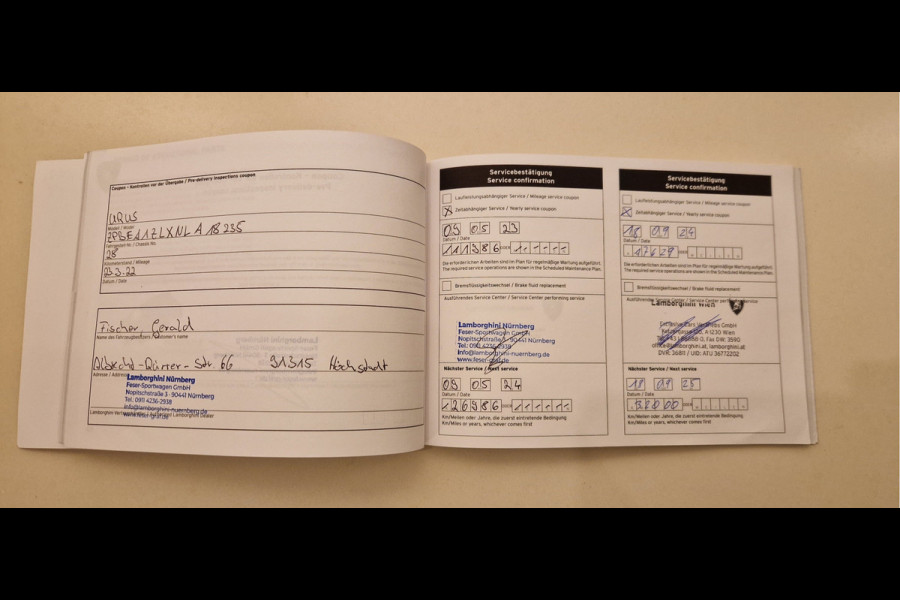 Coupon - Kontrollen vor der Übergabe / Pre-delivery inspections coupon
URUS
Modell / Model
Fahrgestell Nr. / Chassis No.
28
Kilometerstand / Mileage
23.3.22
Datum / Date
Fischer, Gerald
Name des Fahrzeugbesitzers / Customer's name
66 91315 Höchstadt
Adresse / Address
Lamborghini Nürnberg
Feser-Sportwagen GmbH
Nopitschstraße 3 · 90441 Nürnberg
Tel. 0911 4236-2938
info@lamborghini-nuernberg.de
Servicebestätigung
Service confirmation
Laufleistungsabhängiger Service / Mileage service coupon
Zeitabhängiger Service / Yearly service coupon
09 05 23
Datum / Date
Die erforderlichen Arbeiten sind im Plan für regelmäßige Wartung aufgeführt.
The required service operations are shown in the Scheduled Maintenance Plan.
Bremsflüssigkeitswechsel / Brake fluid replacement
Ausführendes Service Center / Service Center performing service
Lamborghini Nürnberg
Feser-Sportwagen GmbH
Nopitschstraße 3 · 90441 Nürnberg
Tel. 0911 4236-2938
info@lamborghini-nuernberg.de
www.feser-graf.de
Nächster Service / Next service
09 05 24
Datum / Date
26986
Km/Meilen oder Jahre, die zuerst eintretende Bedingung
Km/Miles or years, whichever comes first
Servicebestätigung
Service confirmation
Laufleistungsabhängiger Service / Mileage service coupon
Zeitabhängiger Service / Yearly service coupon
18 09 24
Datum / Date
17629
Die erforderlichen Arbeiten sind im Plan für regelmäßige Wartung aufgeführt.
The required service operations are shown in the Scheduled Maintenance Plan.
Bremsflüssigkeitswechsel / Brake fluid replacement
Ausführendes Service Center / Service Center performing service
Lamborghini Wien
GmbH
A-1230 Wien
Fax DW: 3990
lamborghini.at
UID: ATU 36772202
Nächster Service / Next service
18 09 25
Datum / Date
Km/Meilen oder Jahre, die zuerst eintretende Bedingung
Km/Miles or years, whichever comes first